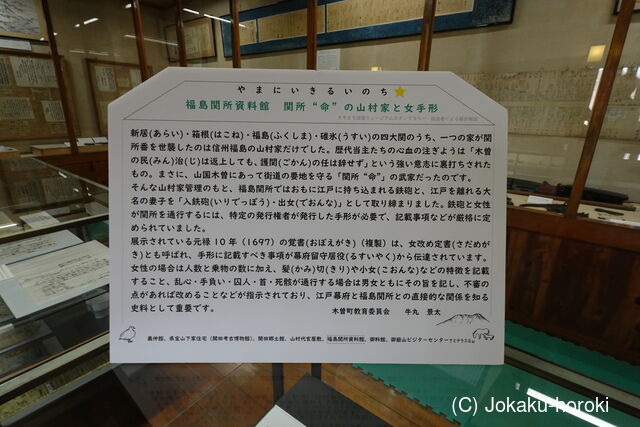 やまにいきるいのち
福島関所資料館　関所“命”の山村家と女手形
新居(あらい)・箱根(はこね)・福島(ふくしま)・碓氷(うすい)の四大関のうち、一つの家が関
所番を世襲したのは信州福島の山村家だけでした。歴代当主たちの心血の注ぎようは「木曽
の民(みん)治(じ)は返上しても、護関(ごかん)の任は辞せず」という強い意志に裏打ちされた
もの。まさに、山国木曽にあって街道の要地を守る「関所“命”」の武家だったのです。
そんな山村家管理のもと、福島関所ではおもに江戸に持ち込まれる鉄砲と、江戸を離れる大
名の妻子を「入鉄砲(いりでっぽう)・出女(でおんな)」として取り締まりました。鉄砲と女性
が関所を通行するには、特定の発行権者が発行した手形が必要で、記載事項などが厳格に定
められていました。
展示されている元禄10年(1697)の覚書(おぼえがき)(複製)は、女改め定書(さだめが
き)とも呼ばれ、手形に記載すべき事項が幕府留守居役(るすいやく)から伝達されています。
女性の場合は人数と乗物の数に加え、髪(かみ)切(きり)や小女(こおんな)などの特徴を記載
すること、乱心・手負い・囚人・首・死骸が通行する場合は男女ともにその旨を記し、不審の
点があれば改めることなどが指示されており、江戸幕府と福島関所との直接的な関係を知る
史料として重要です。
木曽町教育委員会　牛丸　景太
義仲館、県宝山下家住宅(開田考古博物館)、開田郷土館、山村代官屋敷、福島関所資料館、御料館、御嶽山ビジターセンターでミテラスエ
(C) Jokaku-horoki